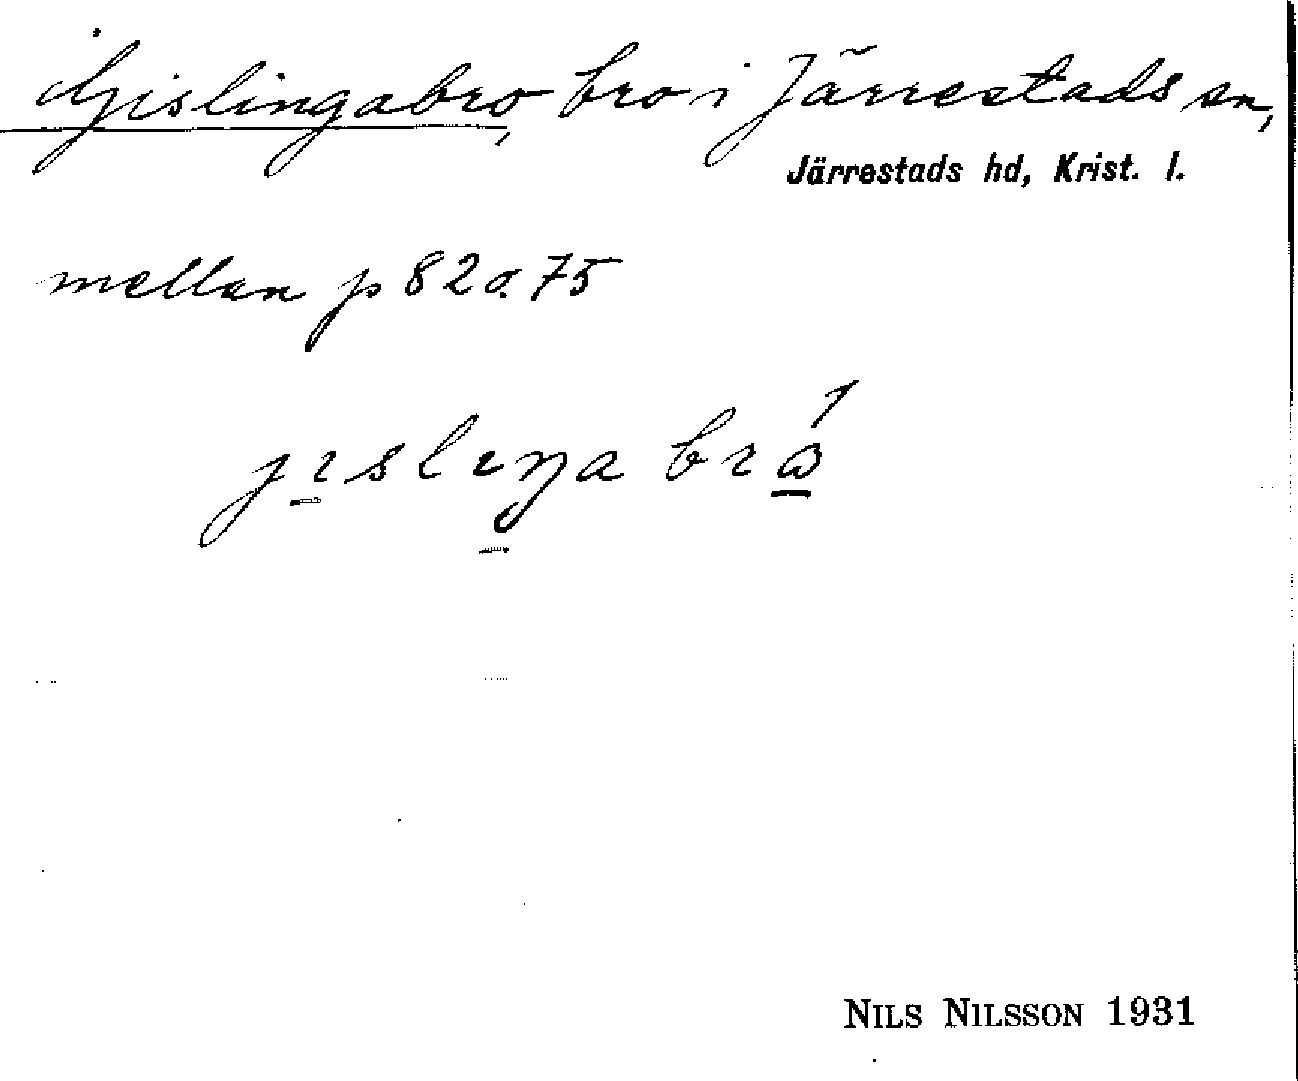 Gislingabro, bro i Järrestads sn,
Järrestads hd, Krist. l.
mellan p 82 o. 75
jɪslɪŋa brɷ́
NILS NILSSON 1931